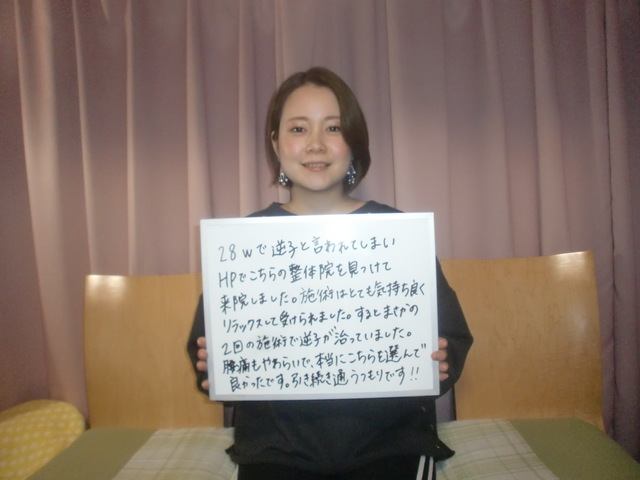 28wで逆子と言われてしまい
HPでこちらの整体院を見つけて
来院しました。施術はとても気持ち良く
リラックスして受けられました。するとまさかの
2回の施術で逆子が治っていました。
腰痛もやわらいで、本当にこちらを選んで
良かったです。引き続き通うつもりです!!